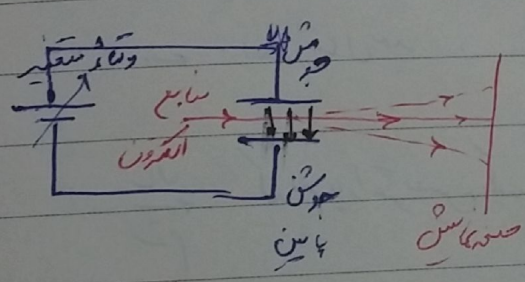 ولتاژ متغیر
جوشن بالا
منابع
الکترون
جوشن
پایین
صفحه نمایش